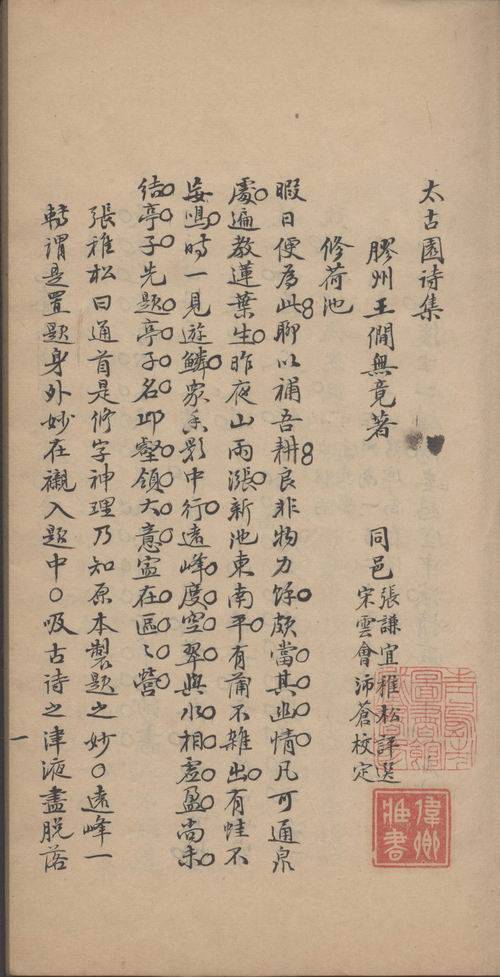 太古園詩集
膠州王僩無竟著　同邑張謙宜稚松評選
宋雲會沛蒼校定
修荷池
暇日便為此聊以補吾耕良非物力餘頗當其幽情凡可通泉
處遍教蓮葉生昨夜山雨漲新池東南平有蒲不雜出有蛙不
妄鳴時一見遊鱗眾香影中行遠峰度空翠與水相虛盈尚未
結亭子先題亭子名邱壑領大意寍在區〻營
張稚松曰通首是修字神理乃知原本製題之妙○遠峰一
轉謂是置題身外妙在襯入題中○吸古诗之津液盡脫落
一